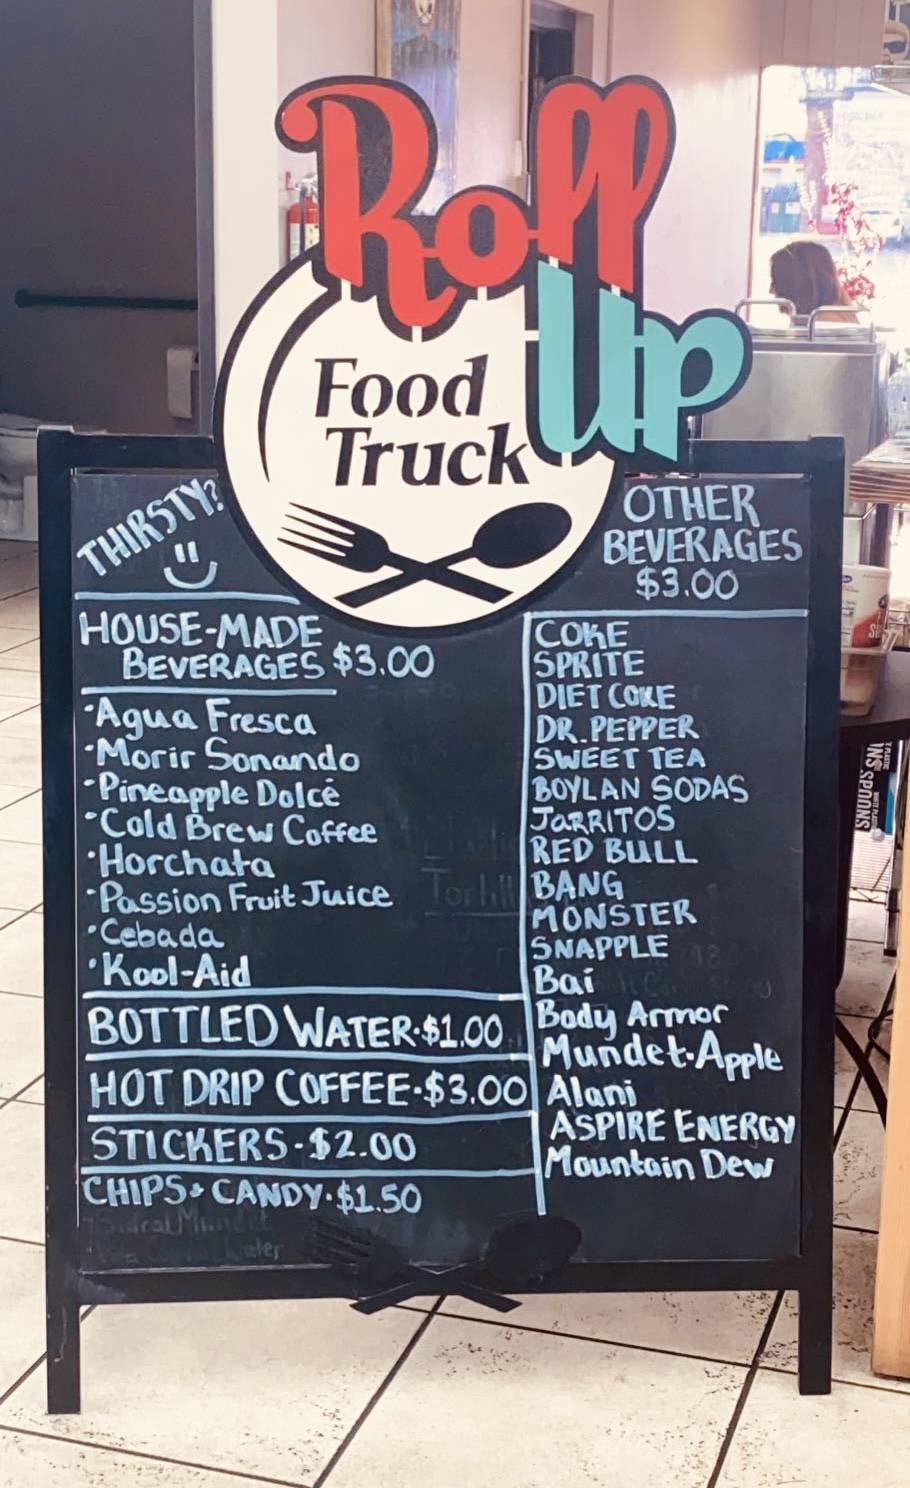 Roll
Up
Food
Truck
THIRSTY?
HOUSE-MADE
BEVERAGES $3.00
·Agua Fresca
·Morir Sonando
·Pineapple Dolcé
·Cold Brew Coffee
·Horchata
·Passion Fruit Juice
·Cebada
·Kool-Aid
BOTTLED WATER·$1.00
HOT DRIP COFFEE·$3.00
STICKERS-$2.00
CHIPS+CANDY·$1.50
OTHER
BEVERAGES
$3.00
COKE
SPRITE
DIET COKE
DR. PEPPER
SWEET TEA
BOYLAN SODAS
JARRITOS
RED BULL
BANG
MONSTER
SNAPPLE
Bai
Body Armor
Mundet-Apple
Alani
ASPIRE ENERGY
Mountain Dew
SPOONS